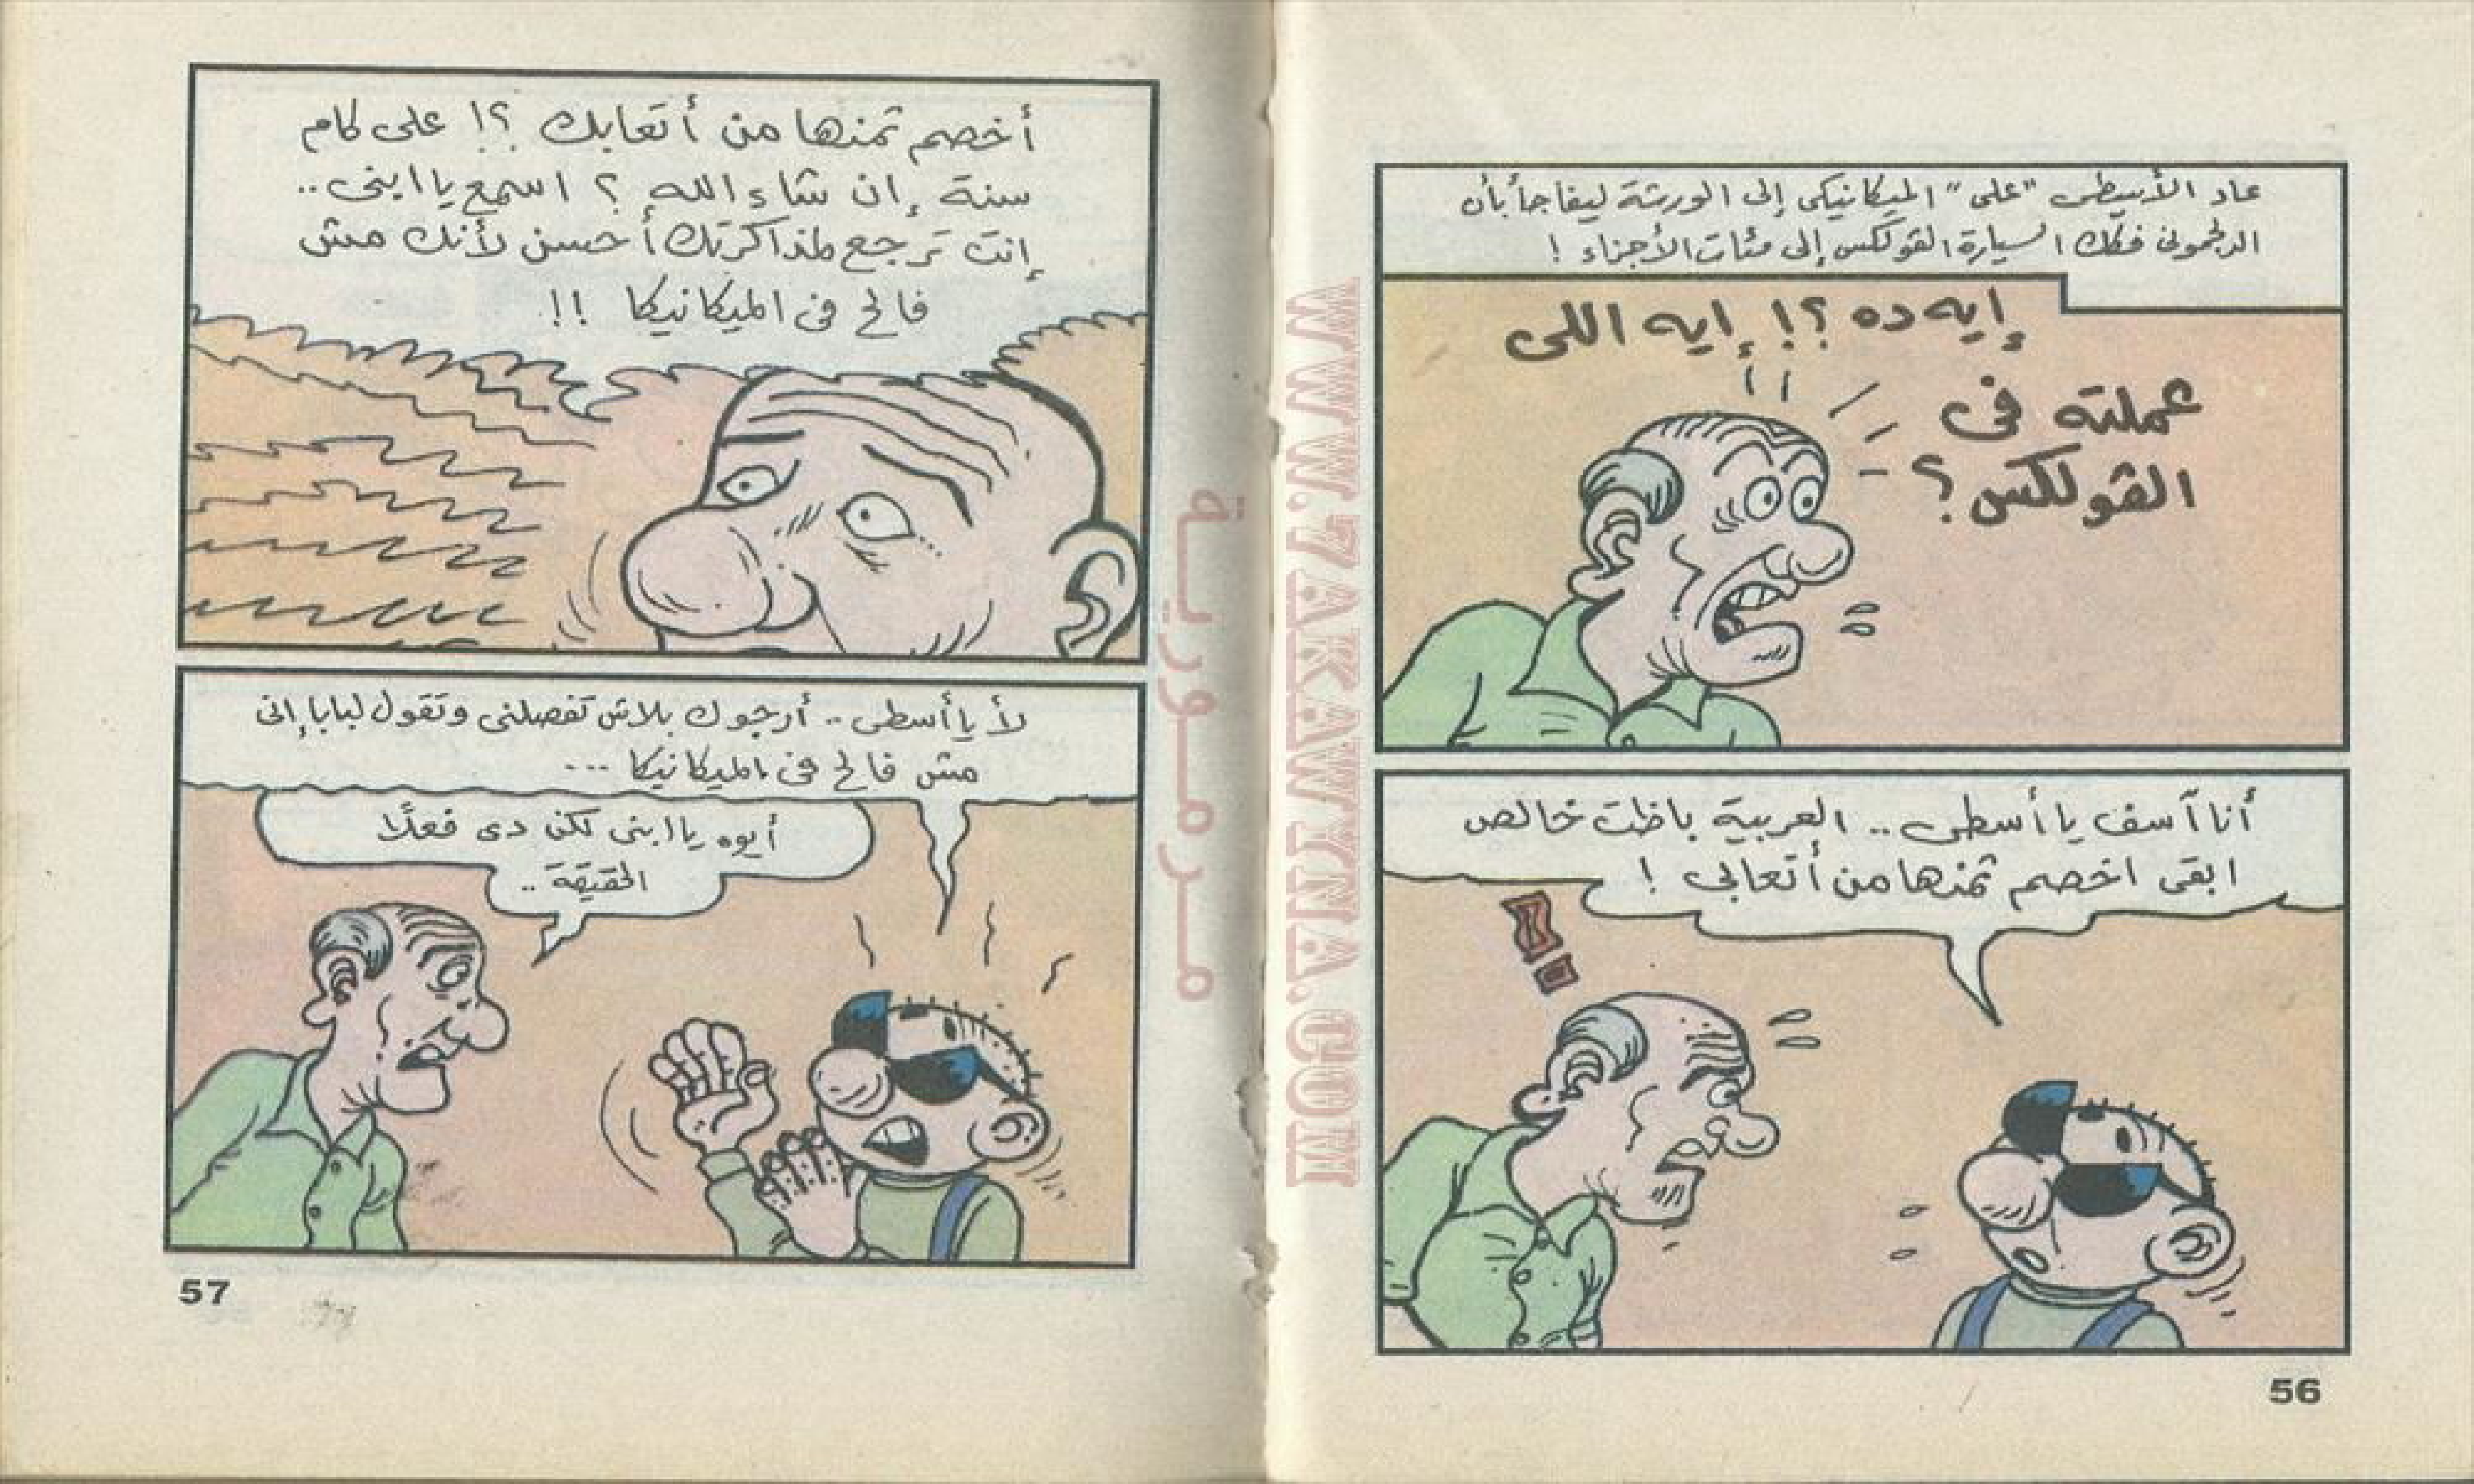 عاد الأسطى "على" الميكانيكى إلى الورشة ليفاجأ بأن
الدلجمونى فكك السيارة الڤولكس إلى مئات الأجزاء !
إيه ده ؟! إيه اللى
عملته فى
الڤولكس ؟
أنا آسف يا أسطى .. العربية باظت خالص
ابقى اخصم ثمنها من أتعابى !
56
أخصم ثمنها من أتعابك ؟! على كام
سنة إن شاء الله ؟ اسمع يا ابنى ..
إنت ترجع لمذاكرتك أحسن لأنك مش
فالح فى الميكانيكا !!
لأ يا أسطى .. أرجوك بلاش تفصلنى وتقول لبابا إنى
مش فالح فى الميكانيكا ...
أيوه يا ابنى لكن دى فعلًا
الحقيقة ..
57
مرمورية
WWW.7AKAWYNA.COM